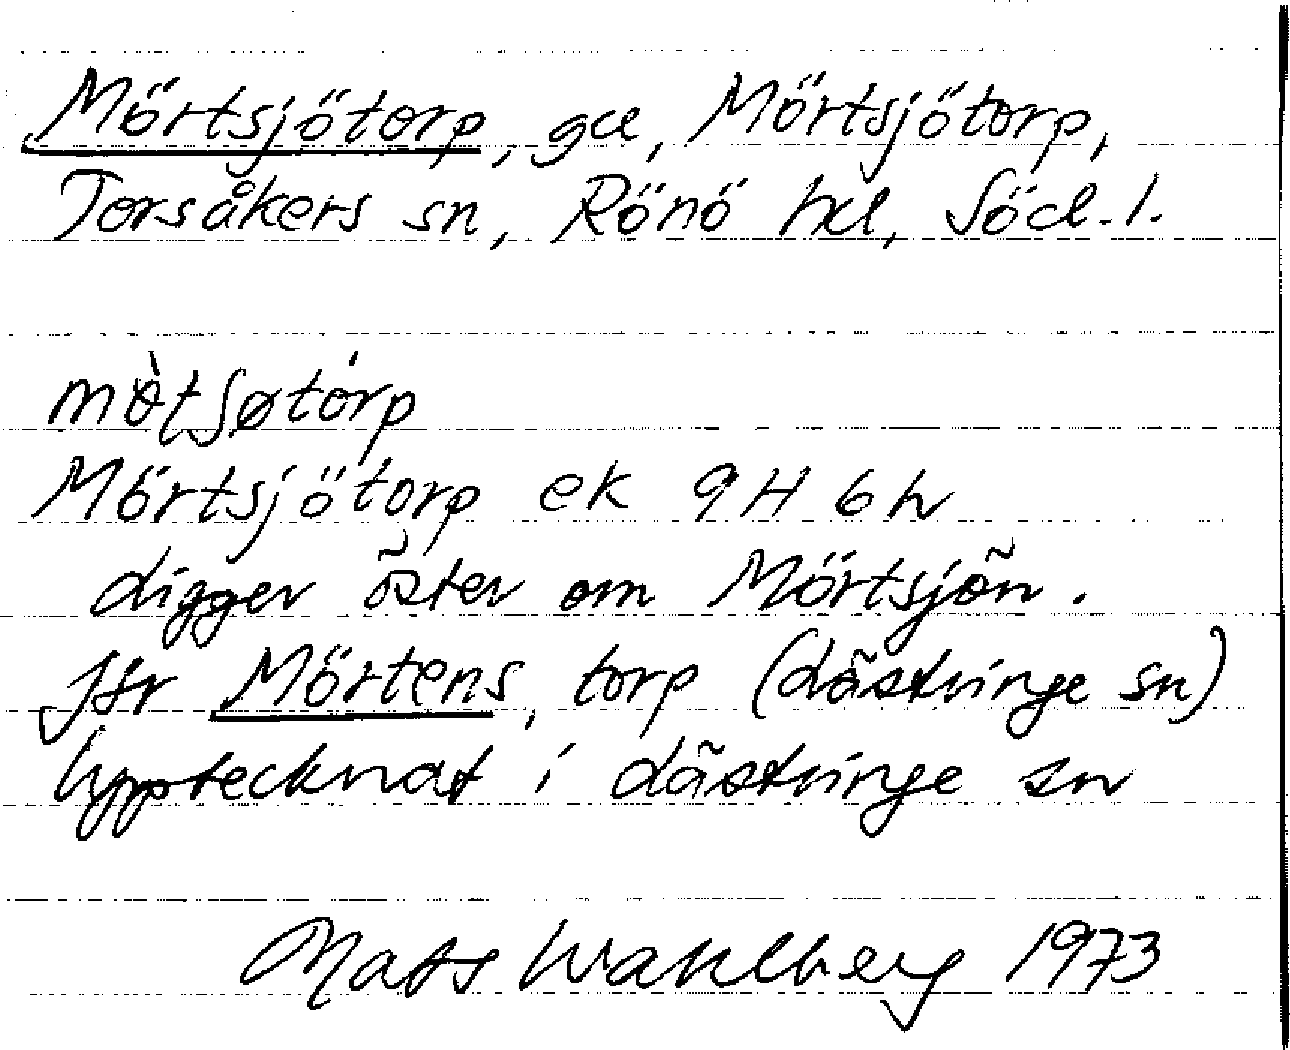 Mörtsjötorp, gd, Mörtsjötorp,
Torsåkers sn, Rönö hd, Söd. l.
Mörtsjötorp ek 9H 6h
Ligger öster om Mörtsjön.
Jfr Mörtens, torp (Lästringe sn)
Upptecknat i Lästringe sn
Mats Wahlberg 1973